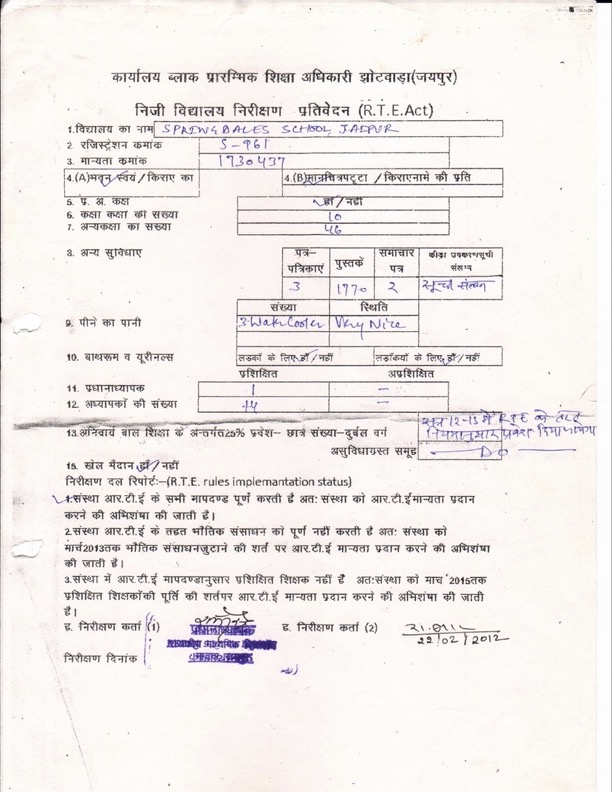 कार्यालय ब्लाक प्रारम्भिक शिक्षा अधिकारी झोटवाड़ा(जयपुर)
निजी विद्यालय निरीक्षण प्रतिवेदन (R.T.E.Act)
1.विद्यालय का नाम SPRINGDALES SCHOOL, JAIPUR
2. रजिस्ट्रेशन कमांक S-961
3. मान्यता कमांक 1730437
4.(A)भवन स्वयं/किराए का 4.(B)मानचित्रपट्टा /किरायेनामे की प्रति
5. प्र. अ. कक्ष हाँ/नहीं
6. कक्षा कक्षा की संख्या 10
7. अन्यकक्षा का संख्या 46
8. अन्य सुविधाए पत्र-पत्रिकाएं पुस्तकें समाचार पत्र कीड़ा उपकरणसूची संलग्न
3 1770 2 सूची संलग्न
संख्या स्थिति
9. पीने का पानी 3 Water Cooler Very Nice
10. बाथरूम व यूरीनल्स लडकों के लिए हाँ/नहीं लड़कियों के लिए हाँ/नहीं
प्रशिक्षित अप्रशिक्षित
11. प्रधानाध्यापक 1 –
12. अध्यापकों की संख्या 14 –
सत्र 12-13 में R.T.E के तहत
13.अनिवार्य बाल शिक्षा के अन्तर्गत25% प्रवेश– छात्र संख्या–दुर्बल वर्ग नियमानुसार प्रवेश दिया
असुविधाग्रस्त समूह — DO —
15. खेल मैदान हाँ/ नहीं
निरीक्षण दल रिपोर्ट:–(R.T.E. rules implemantation status)
1.संस्था आर.टी.ई के सभी मापदण्ड पूर्ण करती है अतः संस्था को आर.टी.ईमान्यता प्रदान
करने की अभिशंषा की जाती है।
2.संस्था आर.टी.ई के तहत भौतिक संसाधन को पूर्ण नहीं करती है अतः संस्था को
मार्च2013तक भौतिक संसाधनजुटाने की शर्त पर आर.टी.ई मान्यता प्रदान करने की अभिशंषा
की जाती है।
3.संस्था में आर.टी.ई मापदण्डानुसार प्रशिक्षित शिक्षक नहीं है अतःसंस्था को मार्च 2015तक
प्रशिक्षित शिक्षकोंकी पूर्ति की शर्तपर आर.टी.ई मान्यता प्रदान करने की अभिशंषा की जाती
है।
ह. निरीक्षण कर्ता (1) ह. निरीक्षण कर्ता (2)
22/02/2012
प्रधानाध्यापक
निरीक्षण दिनांक